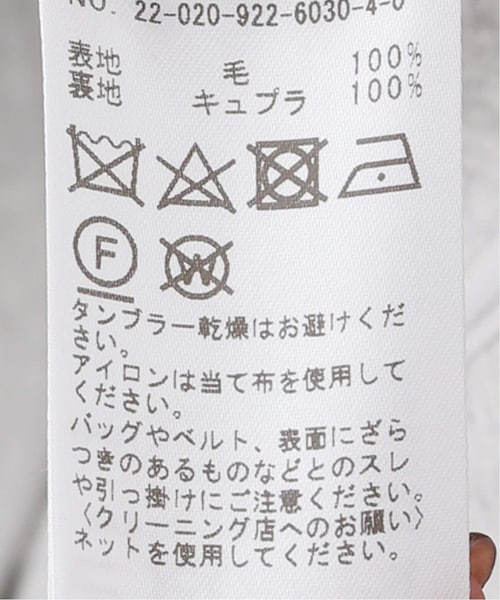 NO. 22-020-922-6030-4-0
表地 毛 100%
裏地 キュプラ 100%
F
W
タンブラー乾燥はお避けくだ
さい。
アイロンは当て布を使用して
ください。
バッグやベルト、表面にざら
つきのあるものなどとのスレ
や引っ掛けにご注意ください。
〈クリーニング店へのお願い〉
ネットを使用してください。